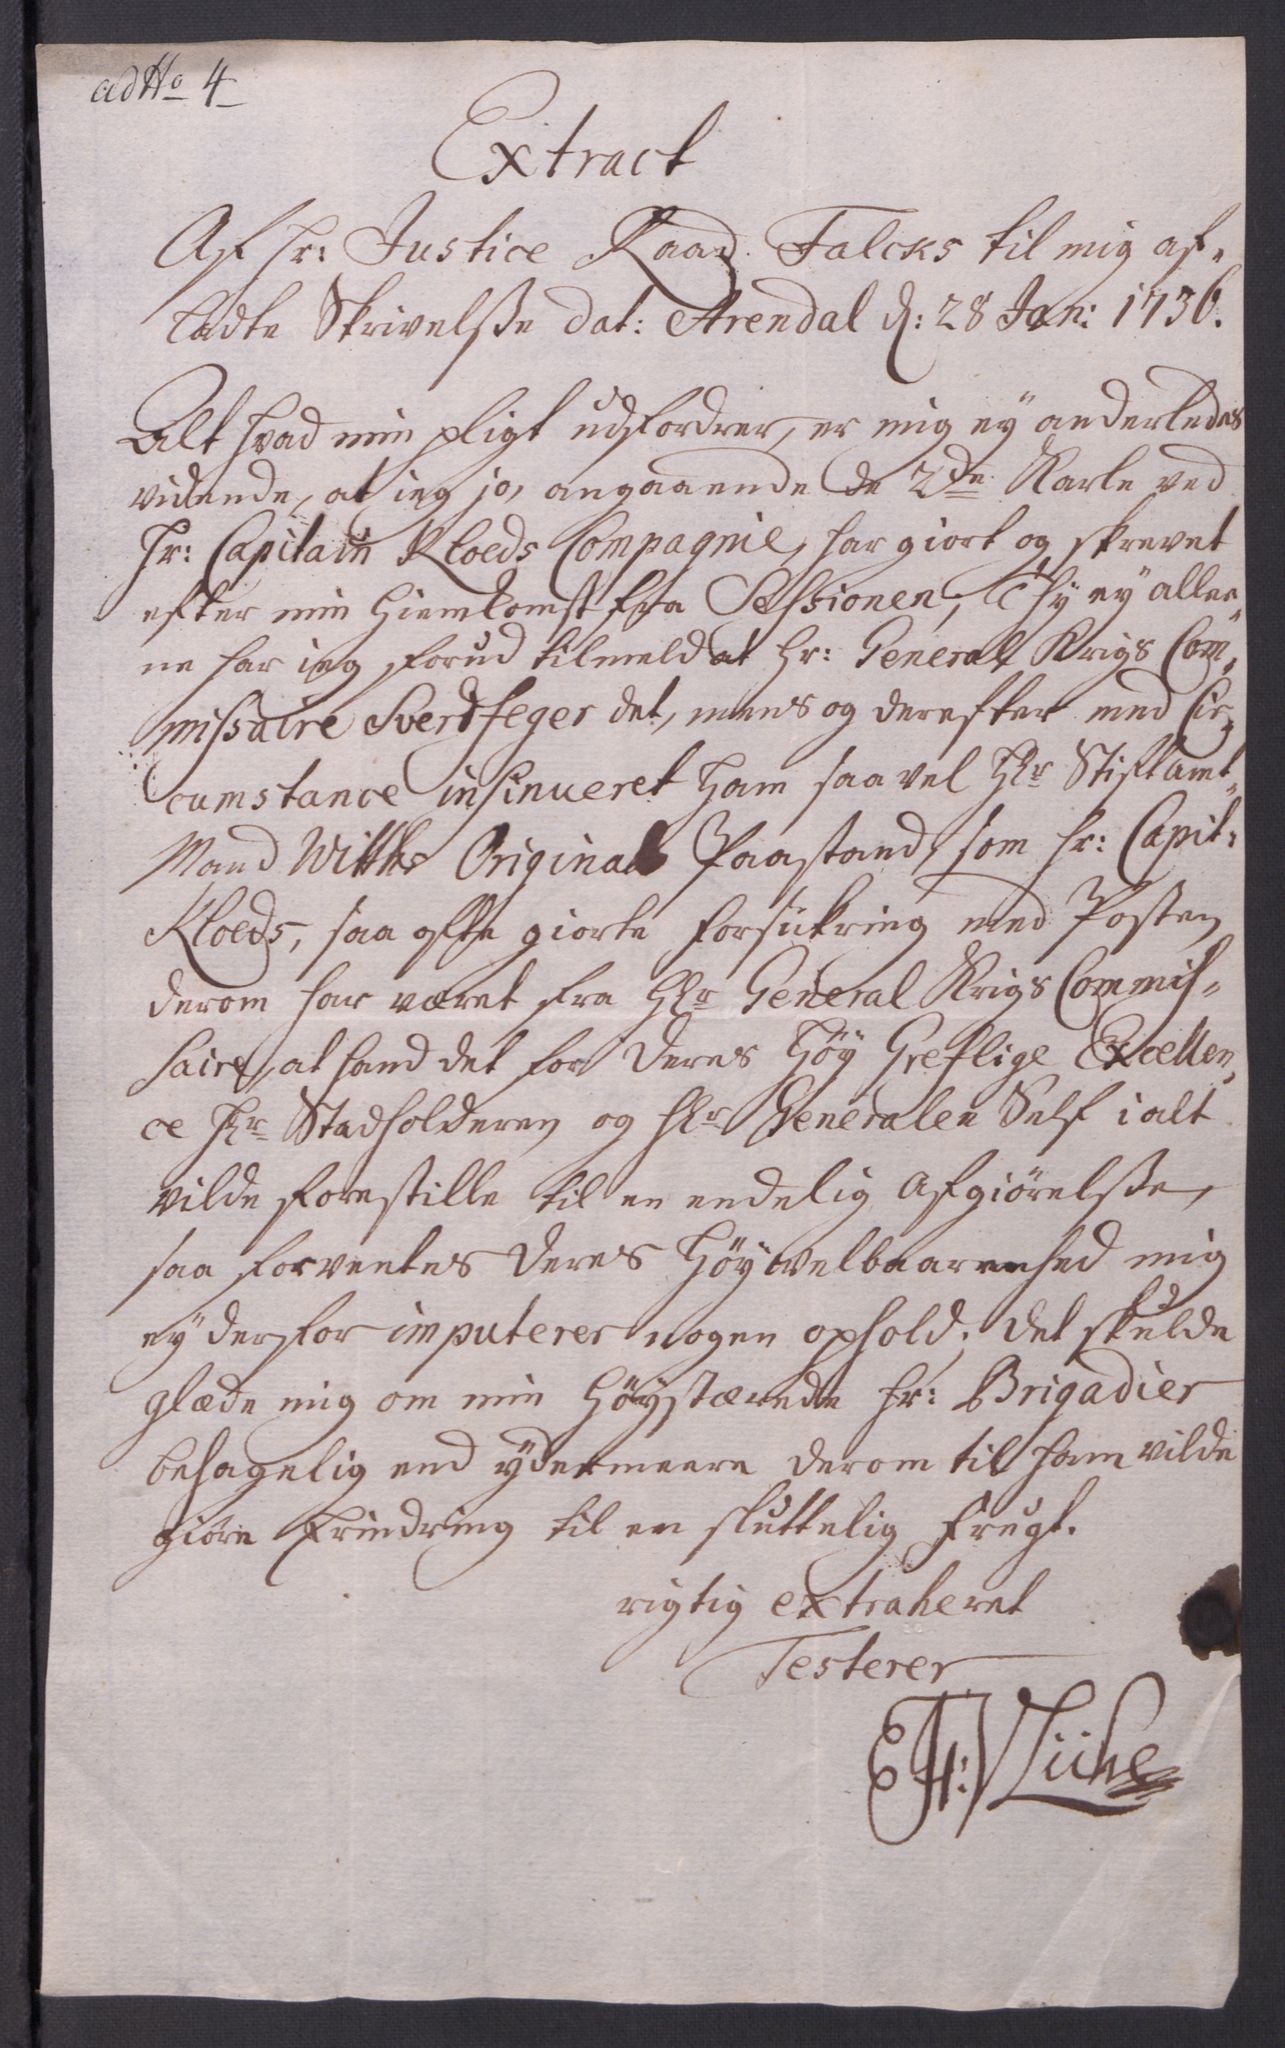 ad No 4
Extract
Af Hr: Justice Raad Falcks til mig af-
ladte Skrivelsse dat: Arendal d: 28 Jan: 1736.
Alt hvad min pligt udfordrer, er mig ey anderledes
vidende, at ieg jo, angaaende de 2de Karle ved
Hr: Capitain Kloeds Compagnie, har giort og skrevet
efter min hiemkomst fra Sessionen, Thy ey allee-
ne har ieg forud tilmeldat hr: General Krigs Com-
missaire Sverdfeger det, mens og derefter med Cir-
cumstance insinueret ham saavel Hr Stiftamt-
Mand Witths Original Paastand, som hr: Capit:
Kloeds, saa ofte giorte forsikring med Posten
derom har været fra Hr General Krigs Commis-
saire, at hand det for Deres Høy Greflige Excellen-
ce Hr Stadholderen og Hr Generalen Self i alt
vilde forestille til en endelig Afgiörelsse,
saa forventes Deres Höyvelbaarenhed mig
ey derfor imputerer nogen ophold; det skulde
glæde mig om min Höystærede hr: Brigadier
behagelig end ydermeere derom til ham vilde
giöre Erindring til en sluttelig frugt.
rigtig extraheret
Testerer